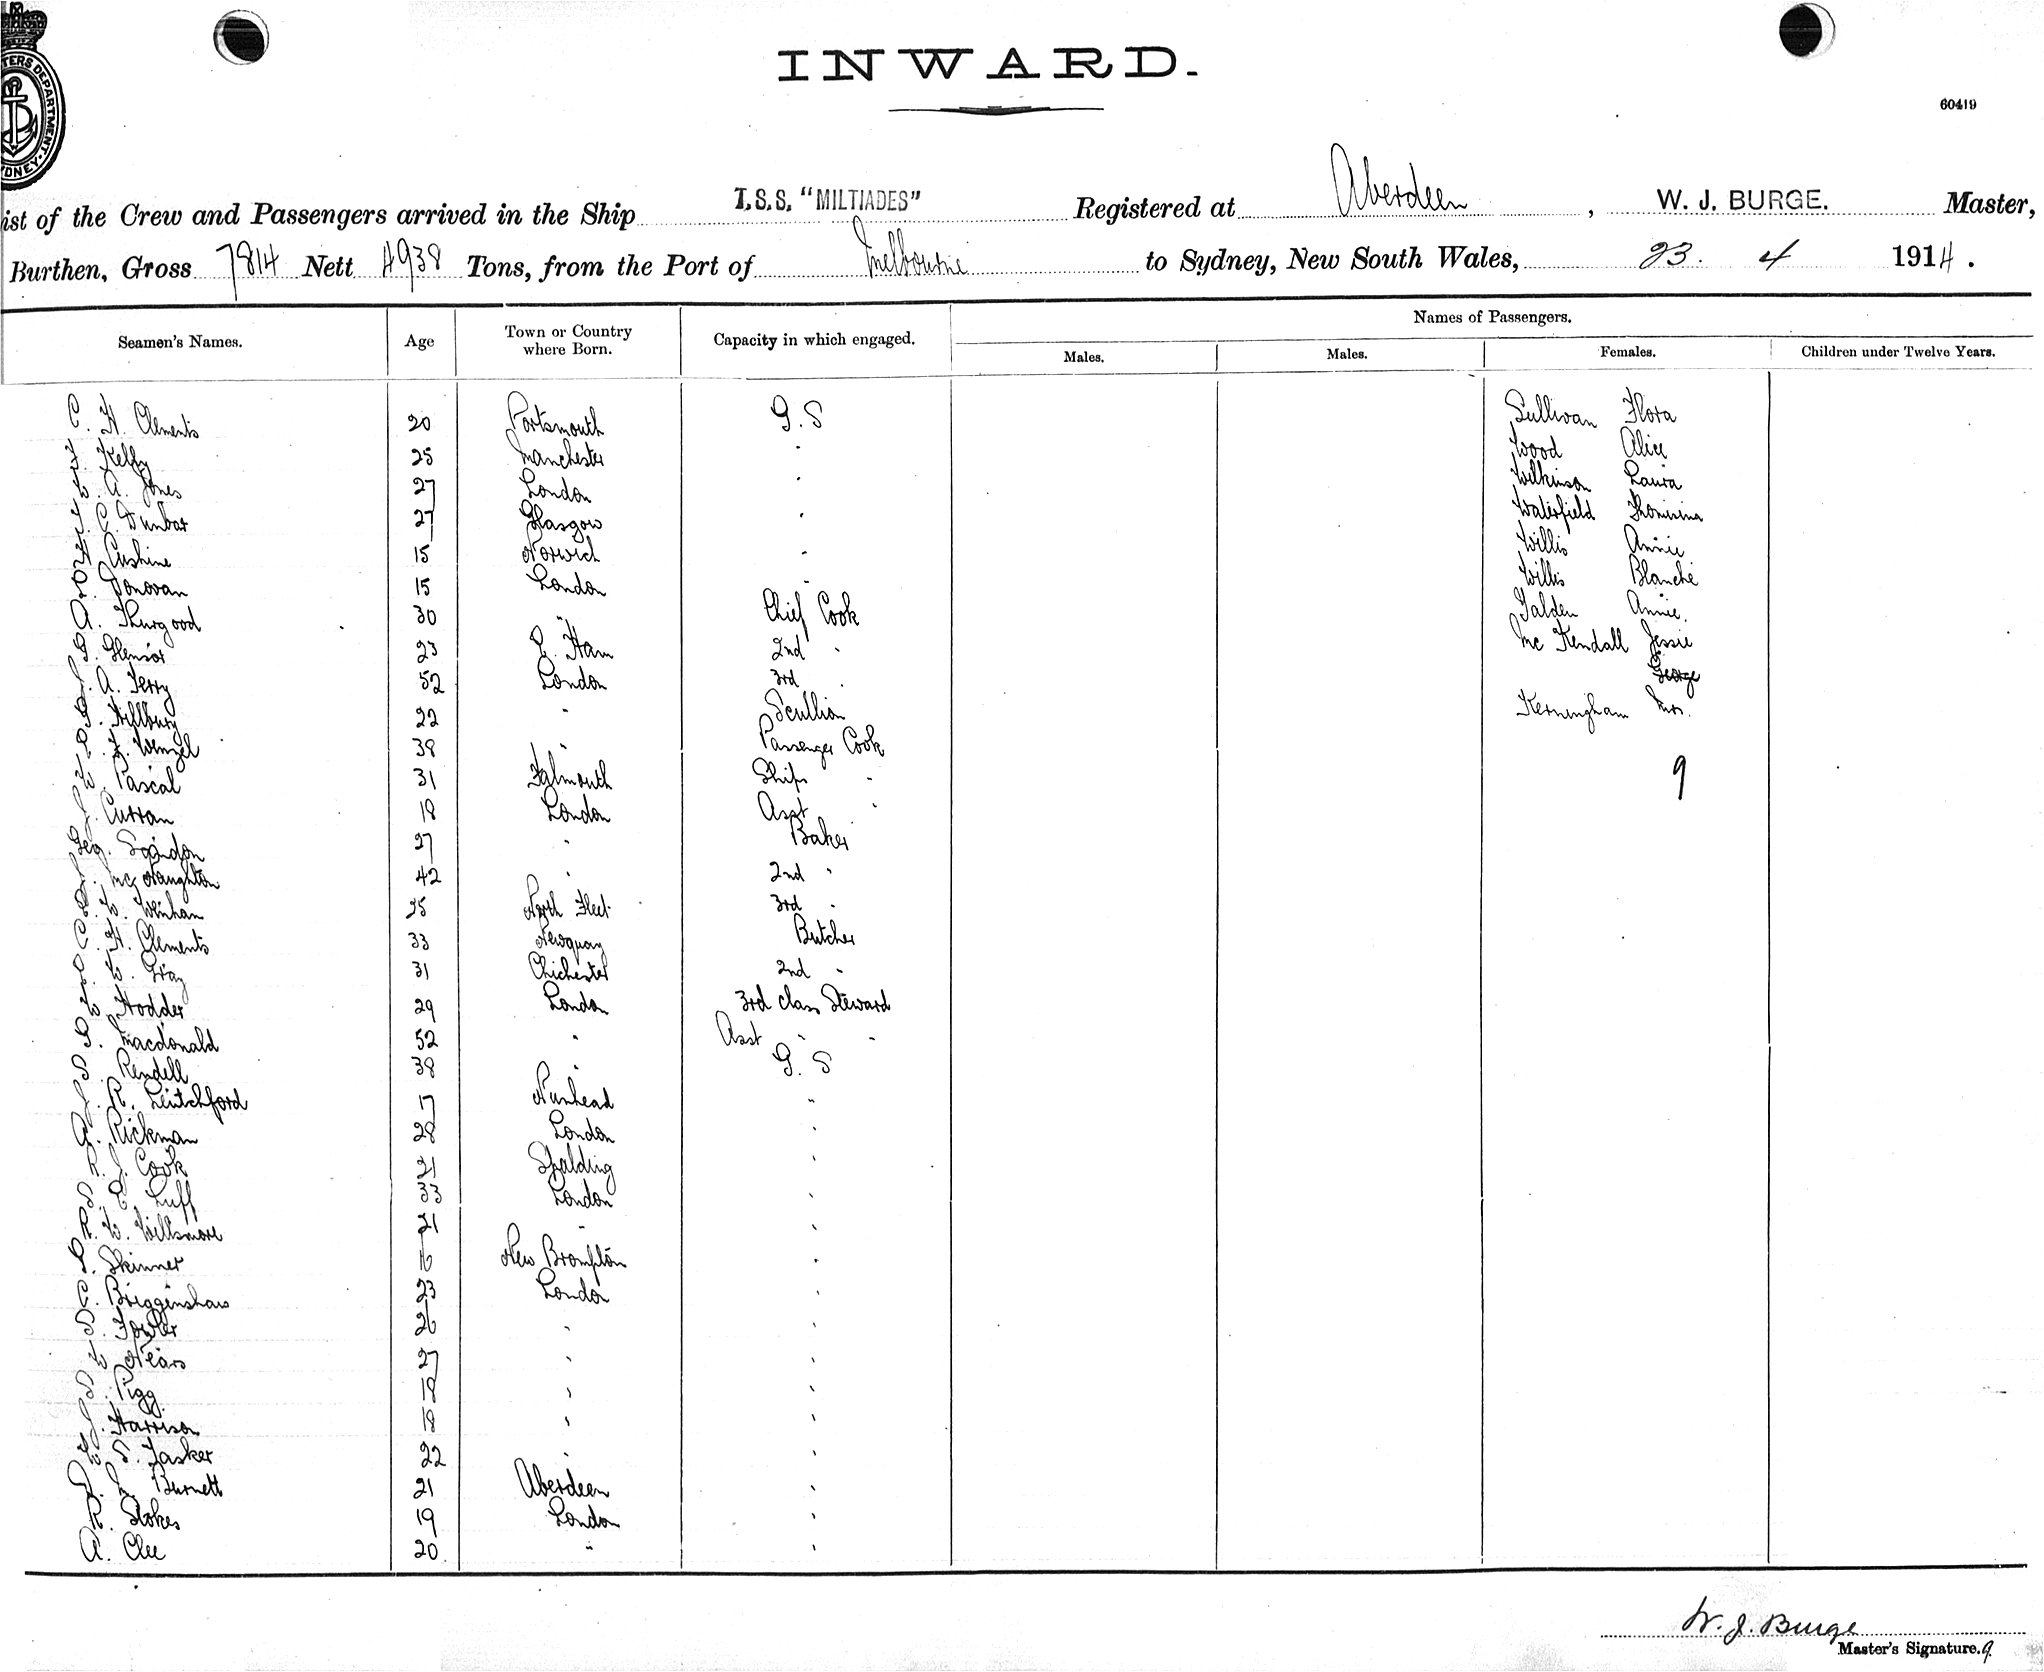 TERS DEPARTMENT.
DNEY
INWARD.
60419
ist of the Crew and Passengers arrived in the Ship T.S.S. "MILTIADES" Registered at Aberdeen, W. J. BURGE. Master,
Burthen, Gross 7814 Nett 4938 Tons, from the Port of Melbourne to Sydney, New South Wales, 23. 4 1914.
Seamen's Names. Age Town or Country where Born. Capacity in which engaged. Names of Passengers.
Males. Males. Females. Children under Twelve Years.
C. H. Clements 20 Portsmouth G. S Sullivan Flora
Kelly 25 Manchester " Wood Alice
A. Jones 27 London " Wilkinson Laura
C. Dunbar 27 Glasgow " Waterfield Thomisina
15 Norwich " Willis Annie
Donovan 15 London " Willis Blanche
A. Thurgood 30 " Chief Cook Annie.
23 E. Ham 2nd " Mc Kendall Jessie
A. Terry 52 London 3rd " George
22 " Scullion Kerningham Mrs.
F. Wenzel 38 " Passenger Cook
Pascal 31 Falmouth Ships " 9
J. Curran 18 London Asst "
Geo. 27 " Baker
McNaughton 42 " 2nd "
W. Wenham 25 North Fleet 3rd "
C. H. Clements 33 Newquay Butcher
W. Gray 31 Chichester 2nd "
W. Hodder 29 London 3rd class Steward
Macdonald 52 " Asst " "
S. Rendell 38 " G. S
J. R. Leutchford 17 Nunhead "
A. Rickman 28 London "
R. J. Cook 21 Spalding "
S. C. Luff 33 London "
R. W. Willsmore 21 " "
Skinner 16 New Brompton "
C. Briggenshaw 23 London "
S. Fowler 26 " "
W. Nears 27 " "
S. Pigg. 18 " "
J. Harrison 18 " "
S. Tasker 22 " "
J. Burnett 21 Aberdeen "
R. Stokes 19 London "
A. Clee 20 " "
W. J. Burge
Master's Signature. 9.